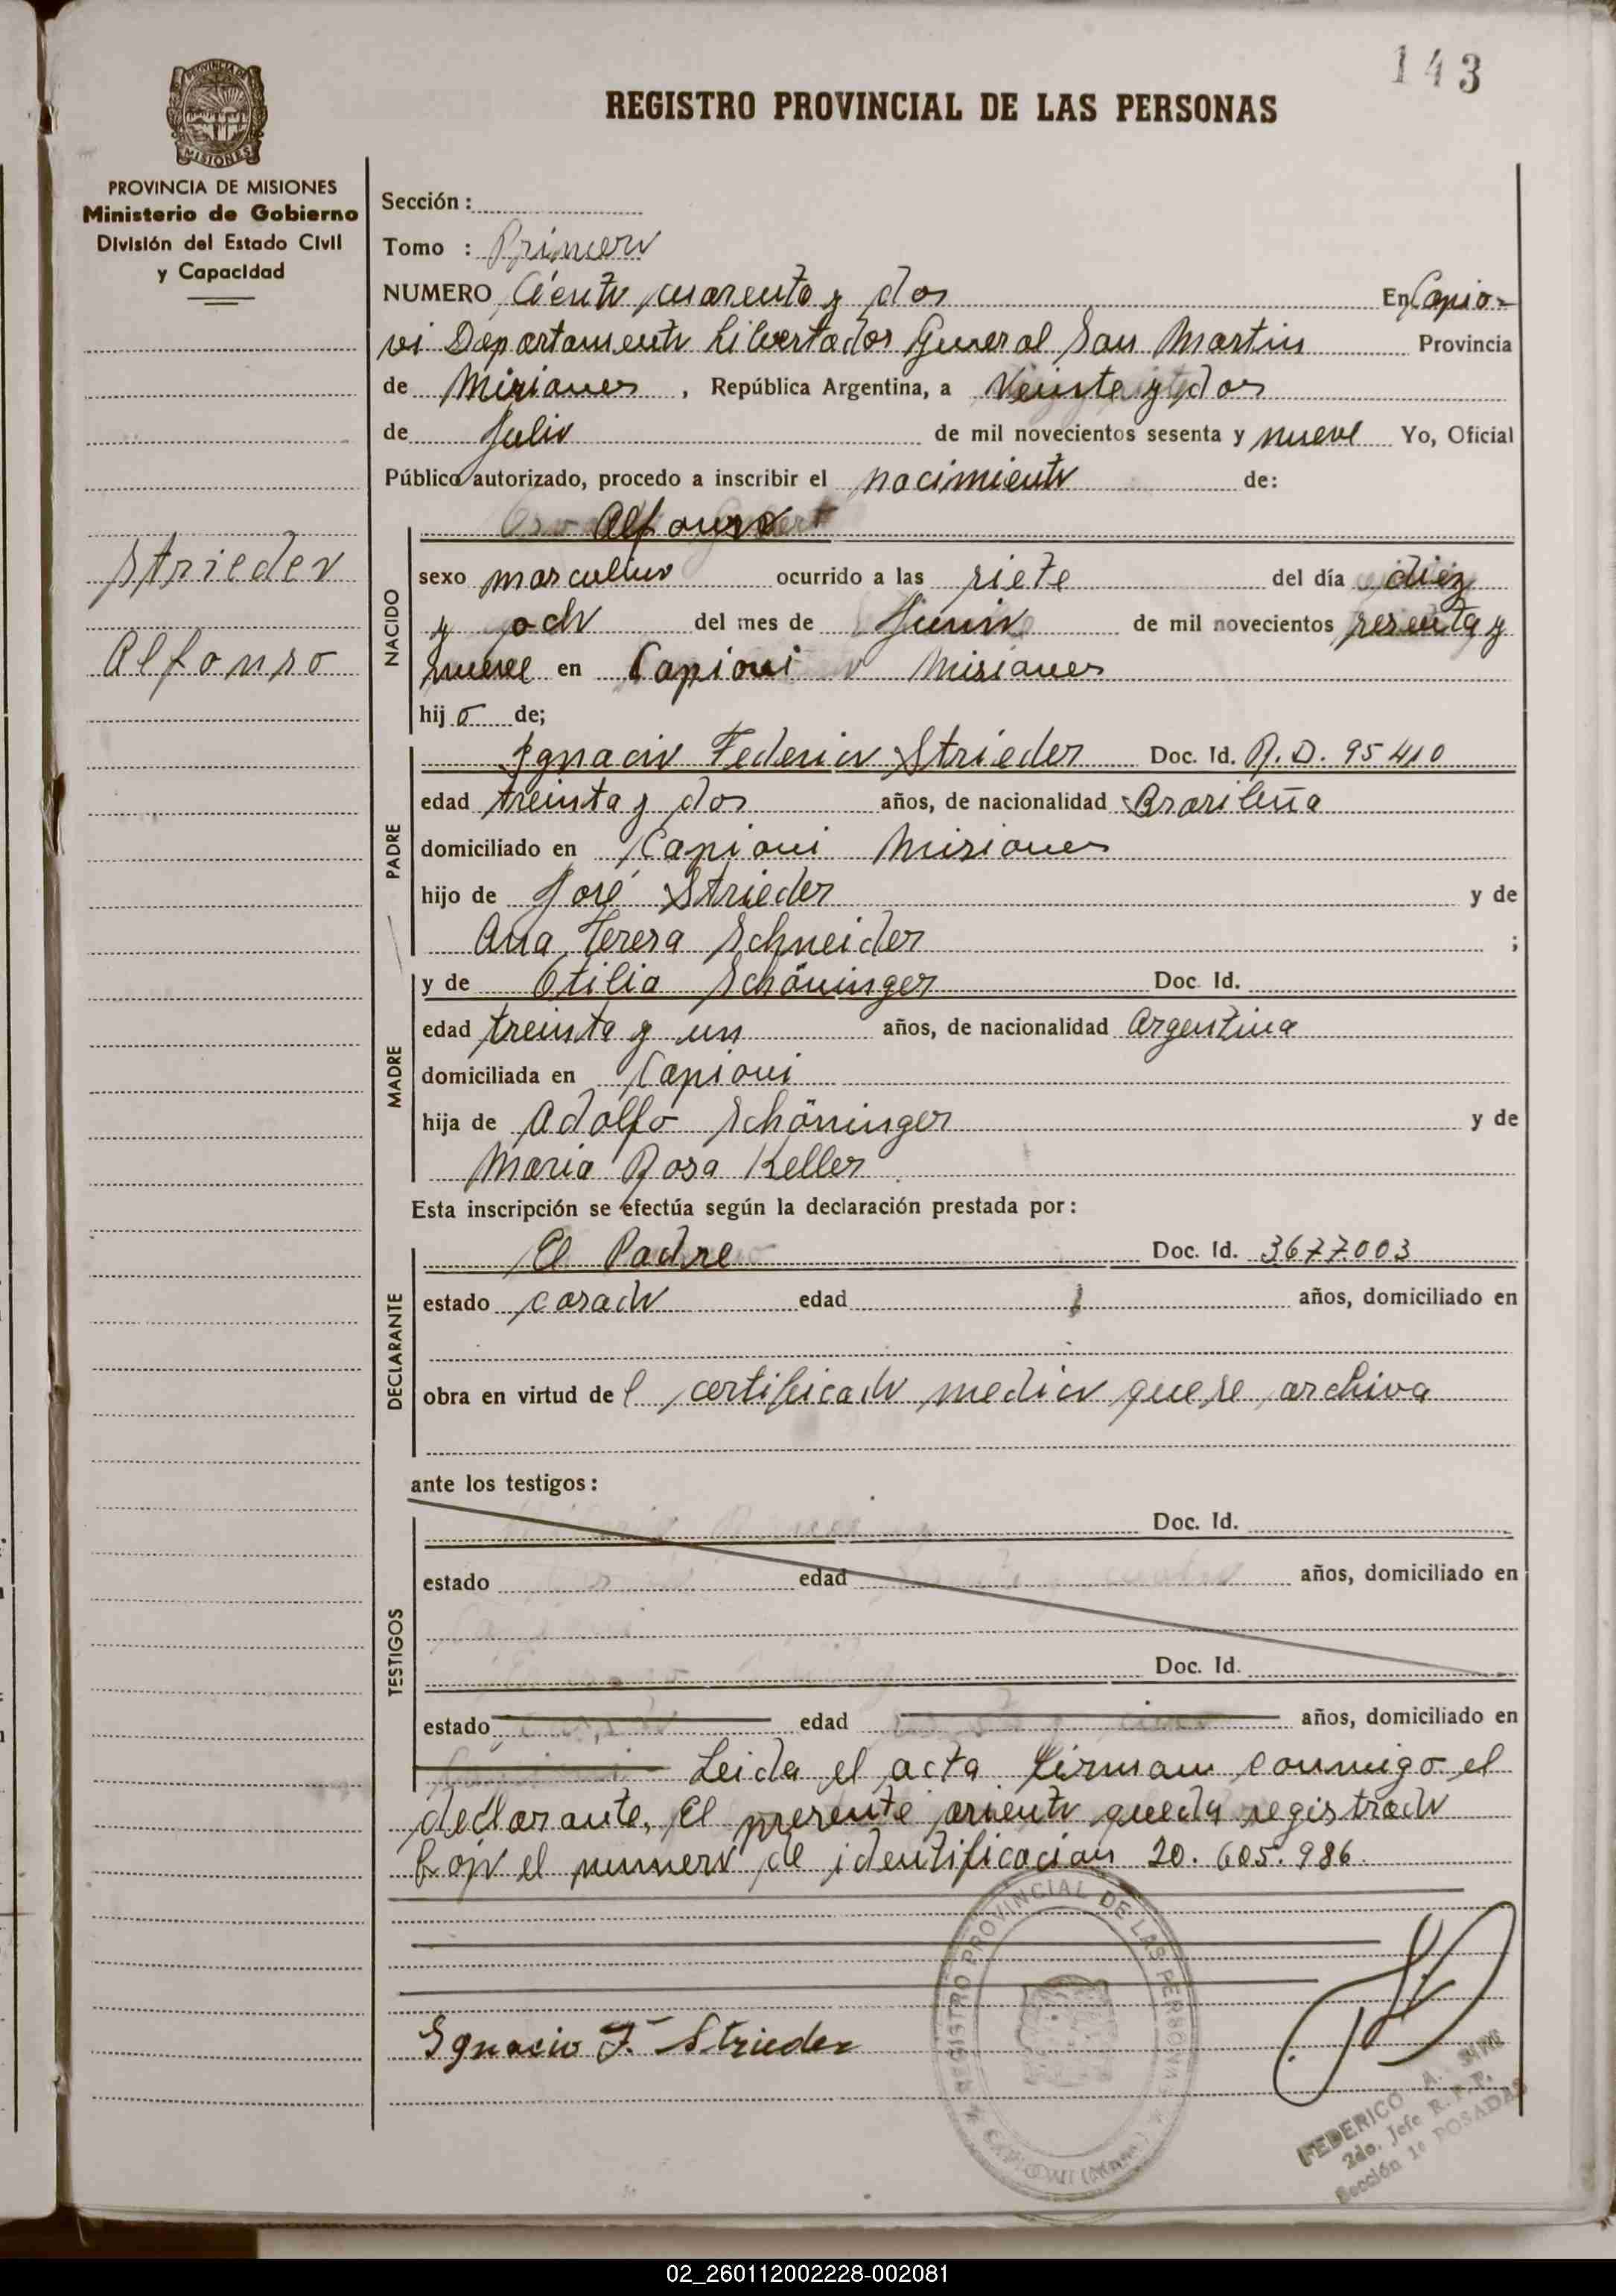 143
PROVINCIA DE
MISIONES
REGISTRO PROVINCIAL DE LAS PERSONAS
PROVINCIA DE MISIONES
Ministerio de Gobierno
División del Estado Civil
y Capacidad
Strieder
Alfonso
Sección :
Tomo : Primero
NUMERO Ciento cuarenta y dos En Capio-
vi Departamento Libertador General San Martin Provincia
de Misiones , República Argentina, a Veinte y dos
de Julio de mil novecientos sesenta y nueve Yo, Oficial
Público autorizado, procedo a inscribir el nacimiento de:
Alfonso
NACIDO
sexo masculino ocurrido a las siete del día diez
y ocho del mes de Junio de mil novecientos sesenta y
nueve en Capiovi Misiones
hij o de;
PADRE
Ignacio Federico Strieder Doc. Id. R. D. 95410
edad treinta y dos años, de nacionalidad Brasileña
domiciliado en Capiovi Misiones
hijo de José Strieder y de
Ana Teresa Schneider ;
MADRE
y de Otilia Schöninger Doc. Id.
edad treinta y un años, de nacionalidad Argentina
domiciliada en Capiovi
hija de Adolfo Schöninger y de
Maria Rosa Keller
Esta inscripción se efectúa según la declaración prestada por :
DECLARANTE
El Padre Doc. Id. 3677.003
estado casado edad años, domiciliado en
obra en virtud de l certificado medico que se archiva
ante los testigos :
TESTIGOS
Doc. Id.
estado edad años, domiciliado en
Doc. Id.
estado edad años, domiciliado en
Leida el acta firman conmigo el
declarante. El presente asiento queda registrado
bajo el numero de identificacion 20.605.986.
REGISTRO PROVINCIAL DE LAS PERSONAS
CAPIOVI (Mnes.)
Ignacio F. Strieder
FEDERICO A.
2do. Jefe R. P. P.
Sección 1º POSADAS
02_260112002228-002081